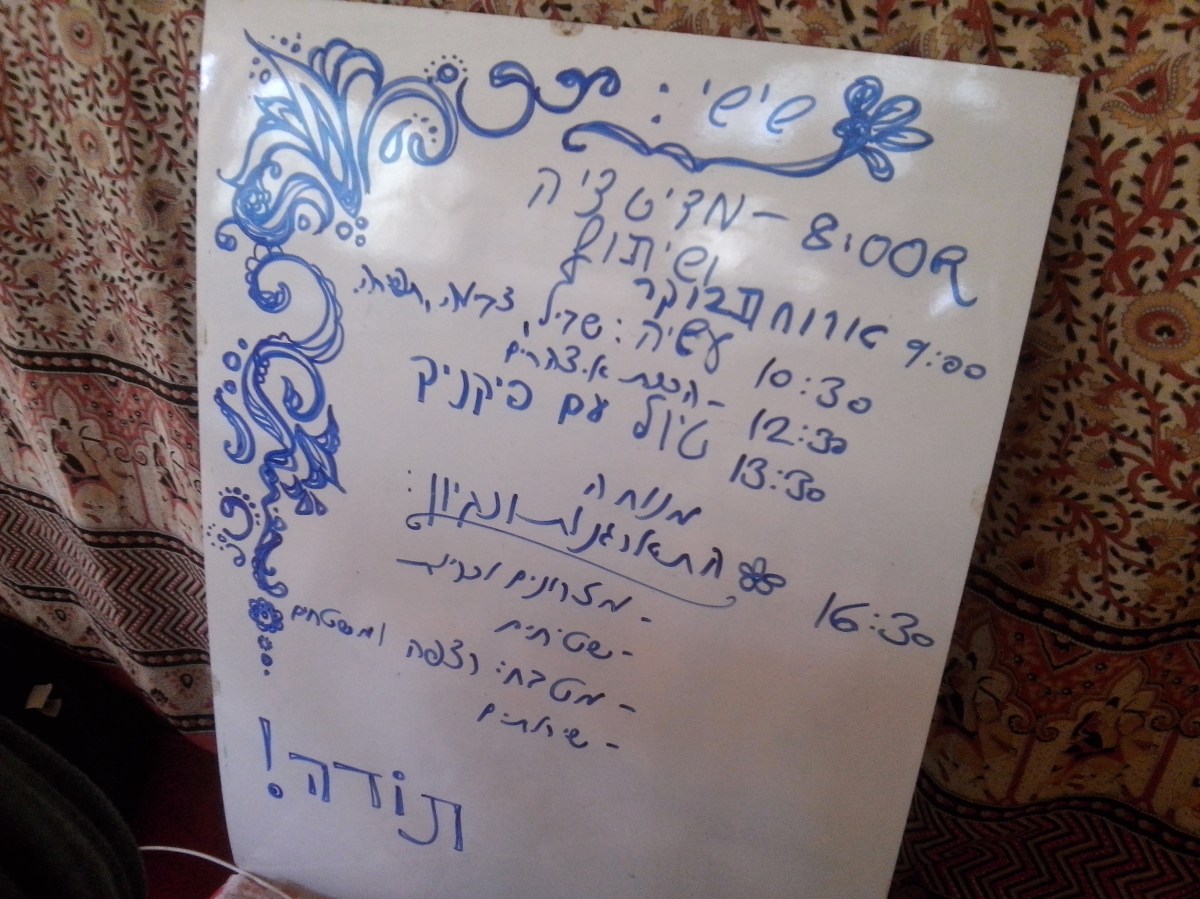 שישי:
8:00 – מדיטציה
ושיתוף
9:00 ארוחת בוקר
10:30 עשיה: שביל,
12:30 - הכנת א. צהרים
13:30 טיול עם פיקניק
מנוחה
16:30 התארגנות ונקיון:
- מזרונים וכריות
- שטיחים
- מטבח: רצפה ומשטחים
- שירותים
תודה!